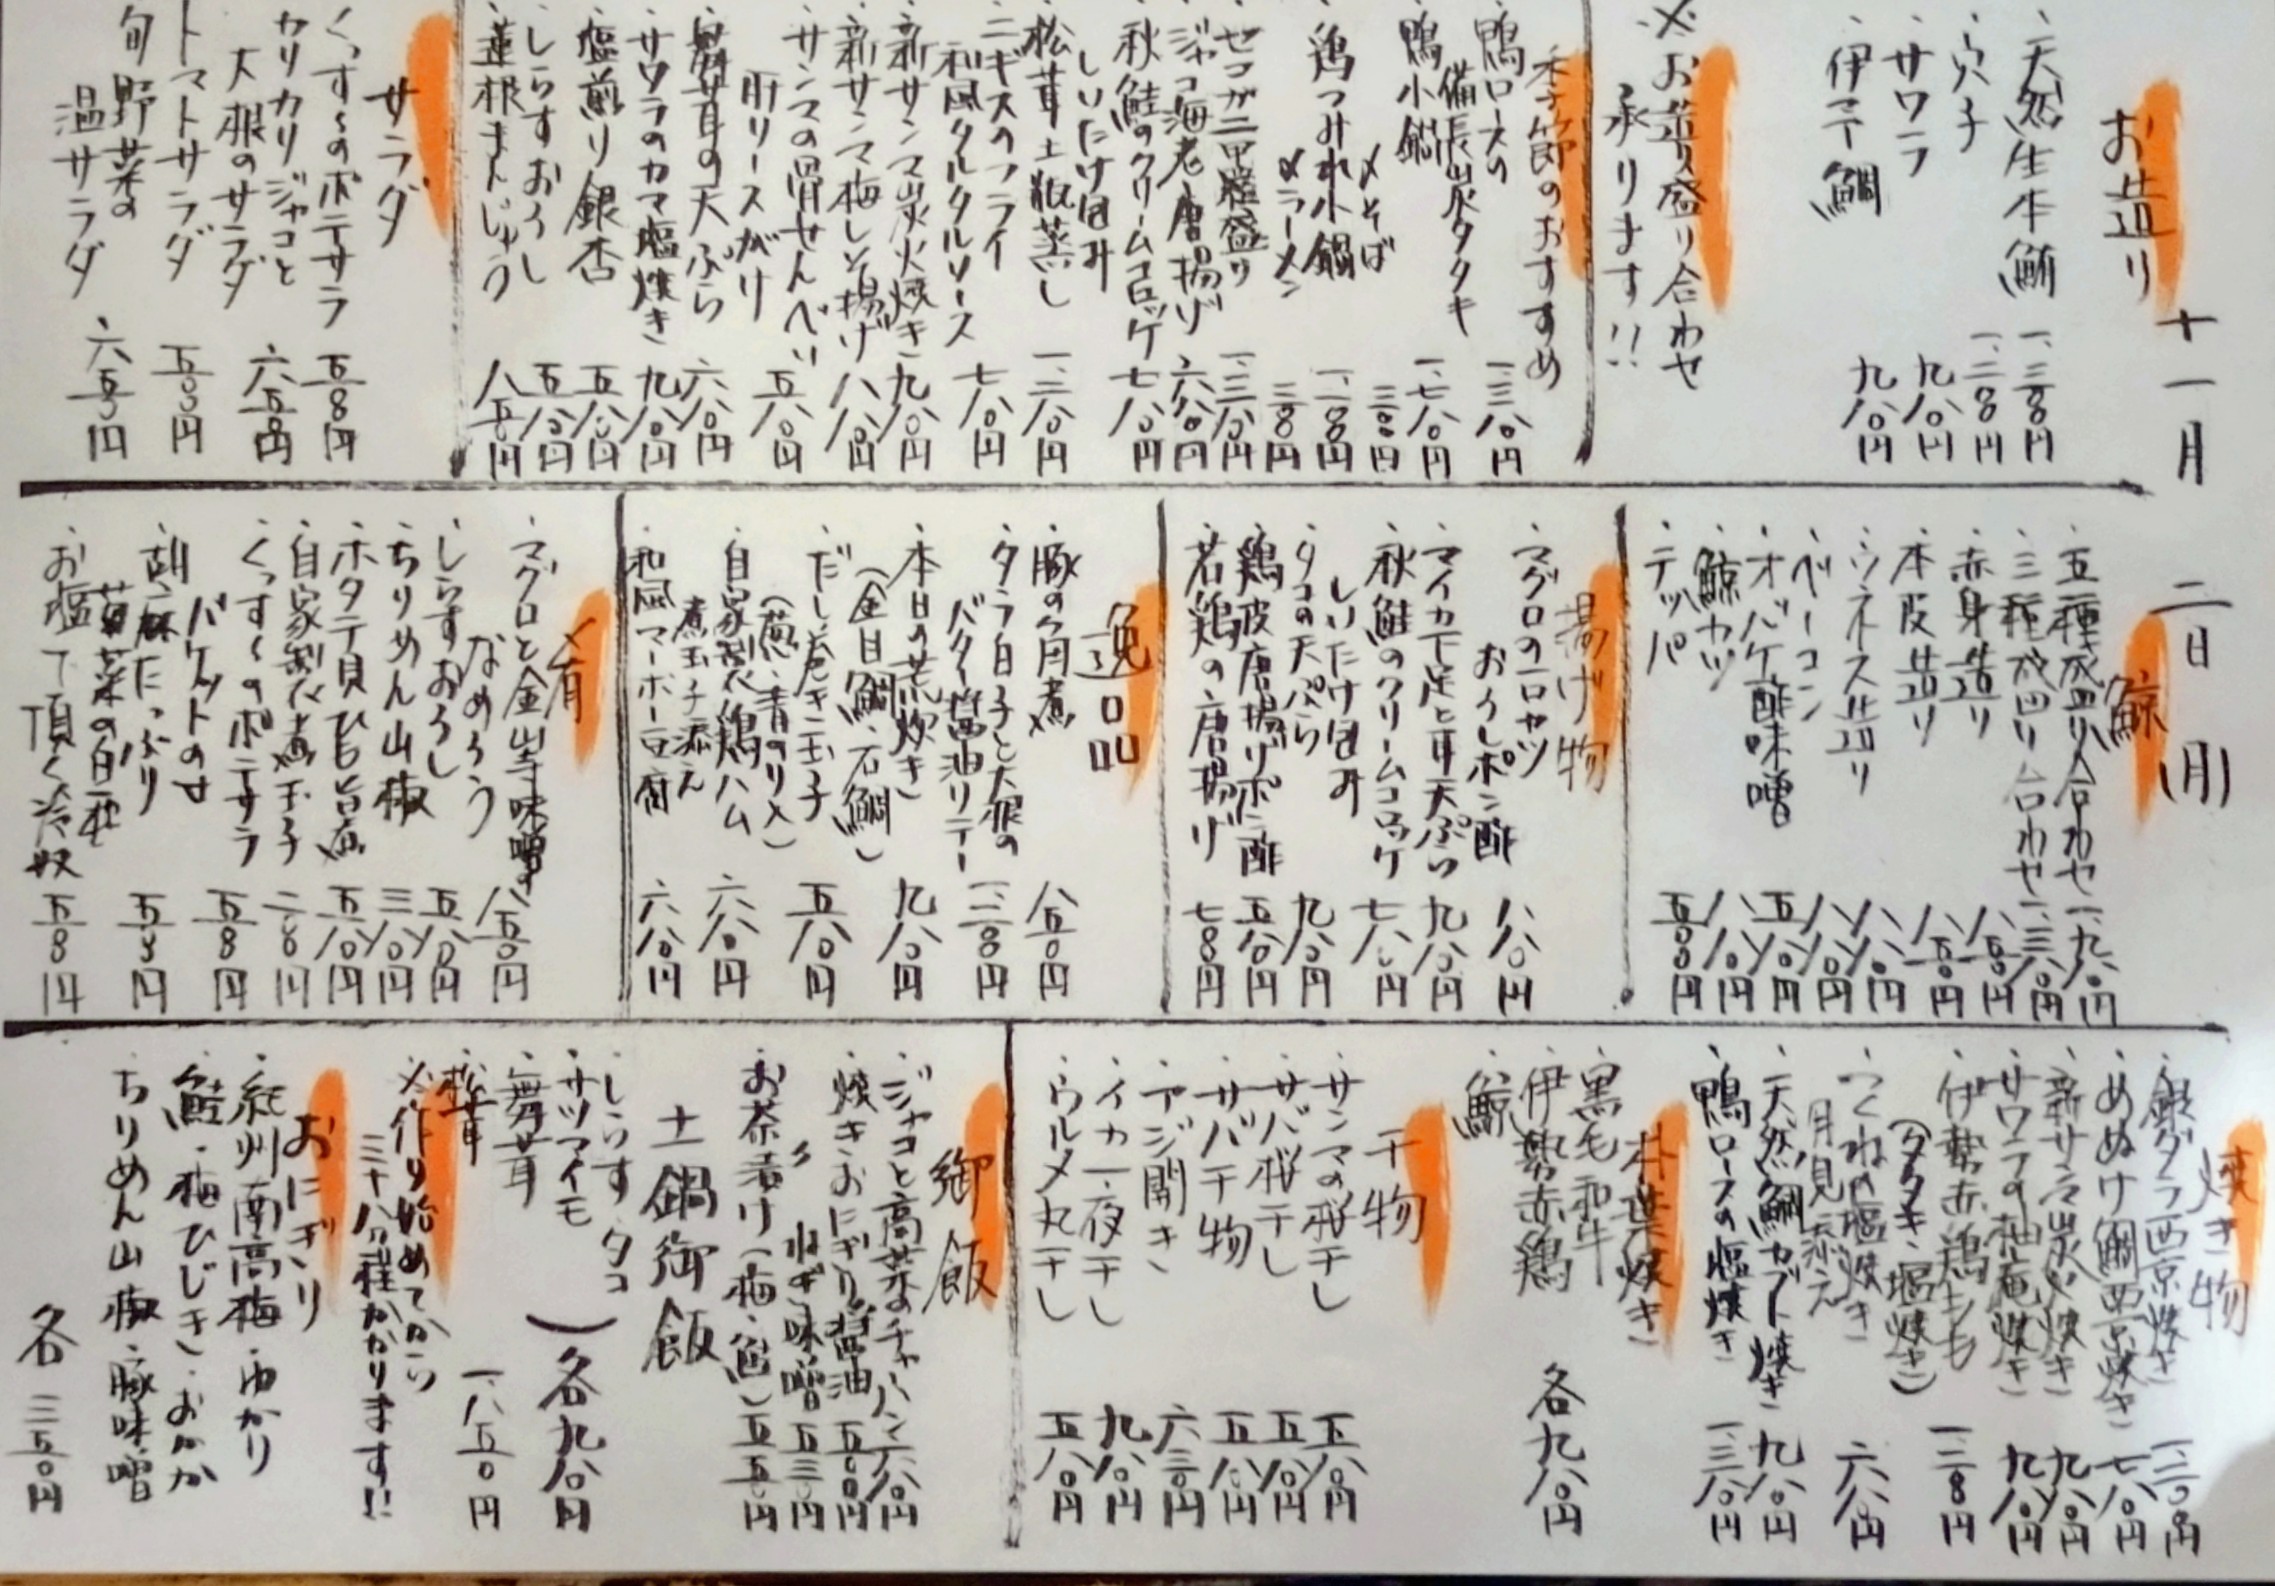 十一月二日(月)
お造り
・天然生本鮪 一、三〇〇円
・穴子 一、三〇〇円
・サワラ 九八〇円
・伊予鯛 九八〇円
※お造り盛り合わせ
承ります!!
季節のおすすめ
・鴨ロースの
備長炭タタキ 一、三八〇円
・鴨小鍋 一、七八〇円
〆そば 三〇〇円
・鶏つみれ小鍋 一、二〇〇円
〆ラーメン 三〇〇円
・セコガニ甲羅盛り 一、三八〇円
・ジャコ海老唐揚げ 六八〇円
・秋鮭のクリームコロッケ
しいたけ包み 七八〇円
・松茸土瓶蒸し 一、二八〇円
・ニギスのフライ
和風タルタルソース 七八〇円
・新サンマ炭火焼き 九八〇円
・新サンマ梅しそ揚げ 八八〇円
・サンマの骨せんべい
肝リースがけ 五八〇円
・舞茸の天ぷら 六八〇円
・サワラのカマ塩焼き 九八〇円
・塩煎り銀杏 五八〇円
・しらすおろし 五八〇円
・蓮根まんじゅう 八五〇円
サラダ
・くっすんのポテサラ 五〇〇円
・カリカリジャコと
大根のサラダ 六五〇円
・トマトサラダ 五〇〇円
・旬野菜の
温サラダ 六五〇円
鯨
・五種盛り合わせ 一、九八〇円
・三種盛り合わせ 一、三八〇円
・赤身造り 八五〇円
・本皮造り 八五〇円
・ウネス造り 八八〇円
・ベーコン 八八〇円
・オバケ酢味噌 五八〇円
・鯨カツ 八八〇円
・テッパ 五〇〇円
揚げ物
・マグロの一口カツ
おろしポン酢 八八〇円
・マイカ下足と耳天ぷら 九八〇円
・秋鮭のクリームコロッケ
しいたけ包み 七八〇円
・タコの天ぷら 九八〇円
・鶏皮唐揚げポン酢 五〇〇円
・若鶏の唐揚げ 七〇〇円
逸品
・豚の角煮 八五〇円
・タラ白子と大根の
バター醤油ソテー 一、二〇〇円
・本日の荒炊き
(金目鯛、石鯛) 九八〇円
・だし巻き玉子
(葱・青のり入) 五八〇円
・自家製鶏ハム
煮玉子添え 六八〇円
・和風マーボー豆腐 六八〇円
〆肴
・マグロと金山寺味噌の
なめろう 八五〇円
・しらすおろし 五八〇円
・ちりめん山椒 三八〇円
・ホタテ貝ひも旨煮 五八〇円
・自家製煮玉子 二〇〇円
・くっすんのポテサラ
バケットのせ 五〇〇円
・胡麻たっぷり
菊菜の白和 五〇〇円
・お塩で頂く冷奴 五〇〇円
焼き物
・銀ダラ西京焼き 一、二〇〇円
・めぬけ鯛西京焼き 七八〇円
・新サンマ炭火焼き 九八〇円
・サワラの柚庵焼き 九八〇円
・伊勢赤鶏もも
(タタキ・塩焼き) 一、三〇〇円
・つくねの塩焼き
月見添え 六八〇円
・天然鯛カブト焼き 九八〇円
・鴨ロースの塩焼き 一、三八〇円
朴葉焼き
・黒毛和牛
・伊勢赤鶏
・鯨
各九八〇円
干物
・サンマの桜干し 五八〇円
・サバ桜干し 五八〇円
・サバ干物 五八〇円
・アジ開き 六三〇円
・イカ一夜干し 九八〇円
・ウルメ丸干し 五八〇円
御飯
・ジャコと高菜のチャーハン 六八〇円
・焼きおにぎり醤油 五〇〇円
〃 ねぎ味噌 五三〇円
・お茶漬け(梅・鮭) 五五〇円
土鍋御飯
・しらす タコ
・サツマイモ
・舞茸
各九八〇円
・松茸 一、八五〇円
※作り始めてから
三十分程かかります!!
おにぎり
・紀州南高梅・ゆかり
・鮭・梅ひじき・おかか
・ちりめん山椒・豚味噌
各 三五〇円